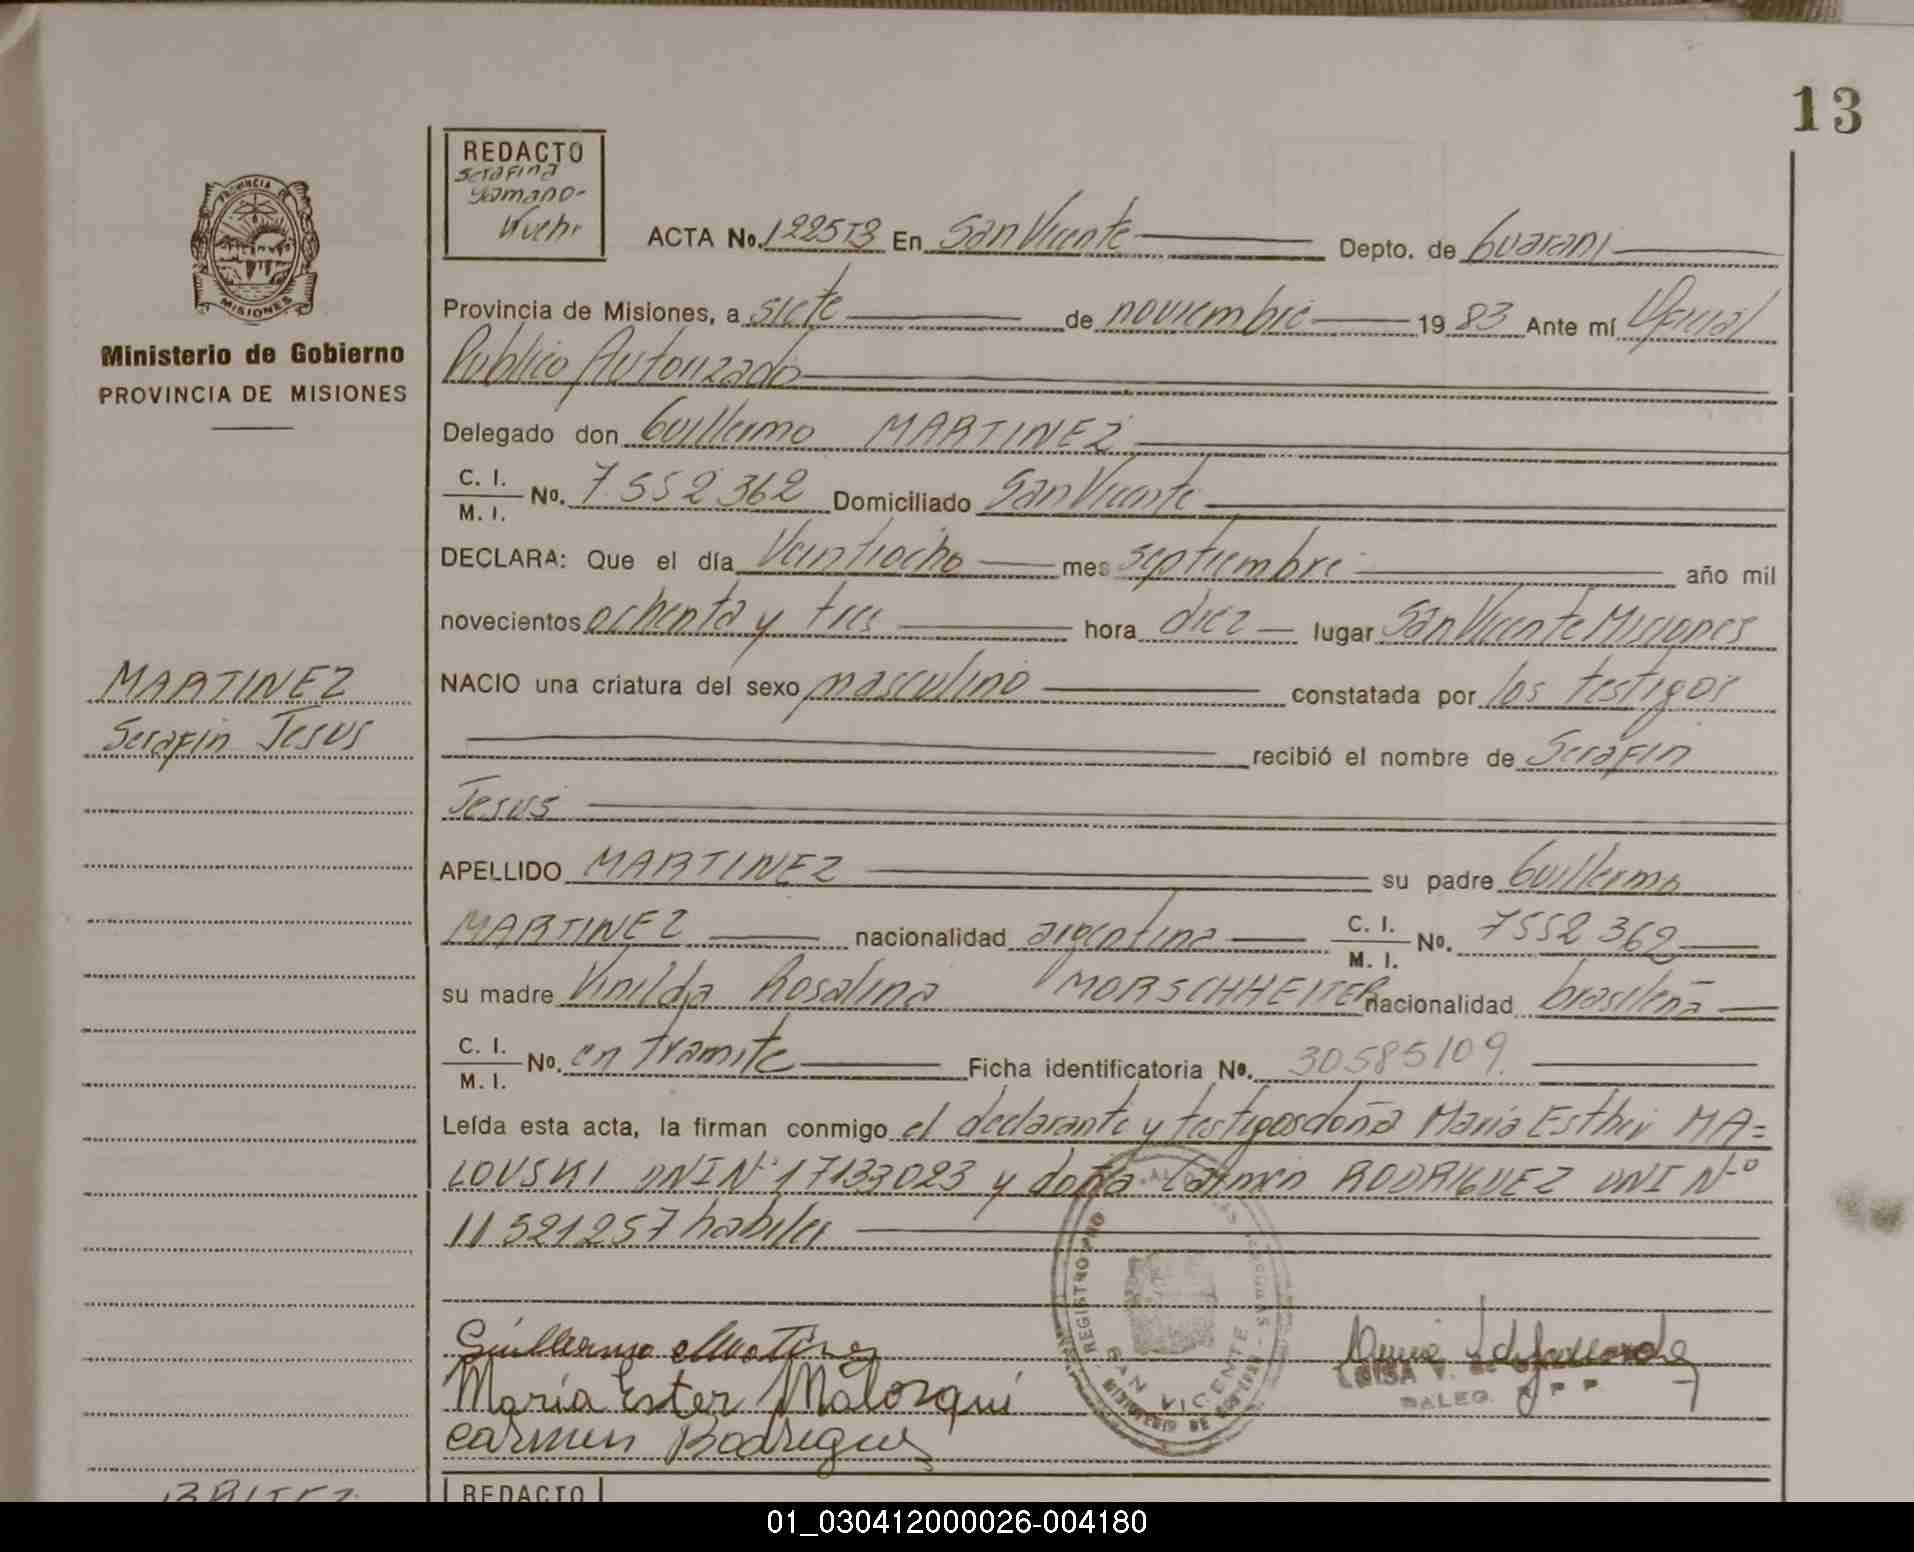 13
REDACTO
Serafina
Yamano-
Kuehr
ACTA No. En San Vicente Depto. de Guarani
PROVINCIA DE
MISIONES
Provincia de Misiones, a siete de noviembre 19 83 Ante mí Oficial
Publico Autorizado
Ministerio de Gobierno
PROVINCIA DE MISIONES
Delegado don Guillermo MARTINEZ
C. I.
M. I.
No. 7.552 362 Domiciliado San Vicente
DECLARA: Que el día Veintiocho mes septiembre año mil
novecientos ochenta y tres hora diez lugar San Vicente Misiones
MARTINEZ
Serafin Jesus
NACIO una criatura del sexo masculino constatada por los testigos
recibió el nombre de Serafin
Jesus
APELLIDO MARTINEZ su padre Guillermo
MARTINEZ nacionalidad argentina C. I. M. I. No. 7552 362
su madre Vinilda Rosalina MORSCHHEITER nacionalidad brasileña
C. I.
M. I.
No. en tramite Ficha identificatoria No. 30585109.
Leída esta acta, la firman conmigo el declarante y testigos doña Maria Esther MA=
LOVSKI DNI Nº 17133023 y doña Carmen RODRIGUEZ DNI Nº
11521257 habiles
Guillermo Martinez
Maria Ester Malosqui
Carmen Rodriguez
REGISTRO PRO
SAN VICENTE
MINISTERIO DE
LUISA V. de
DALEG.
REDACTO
BRITEZ
01_030412000026-004180